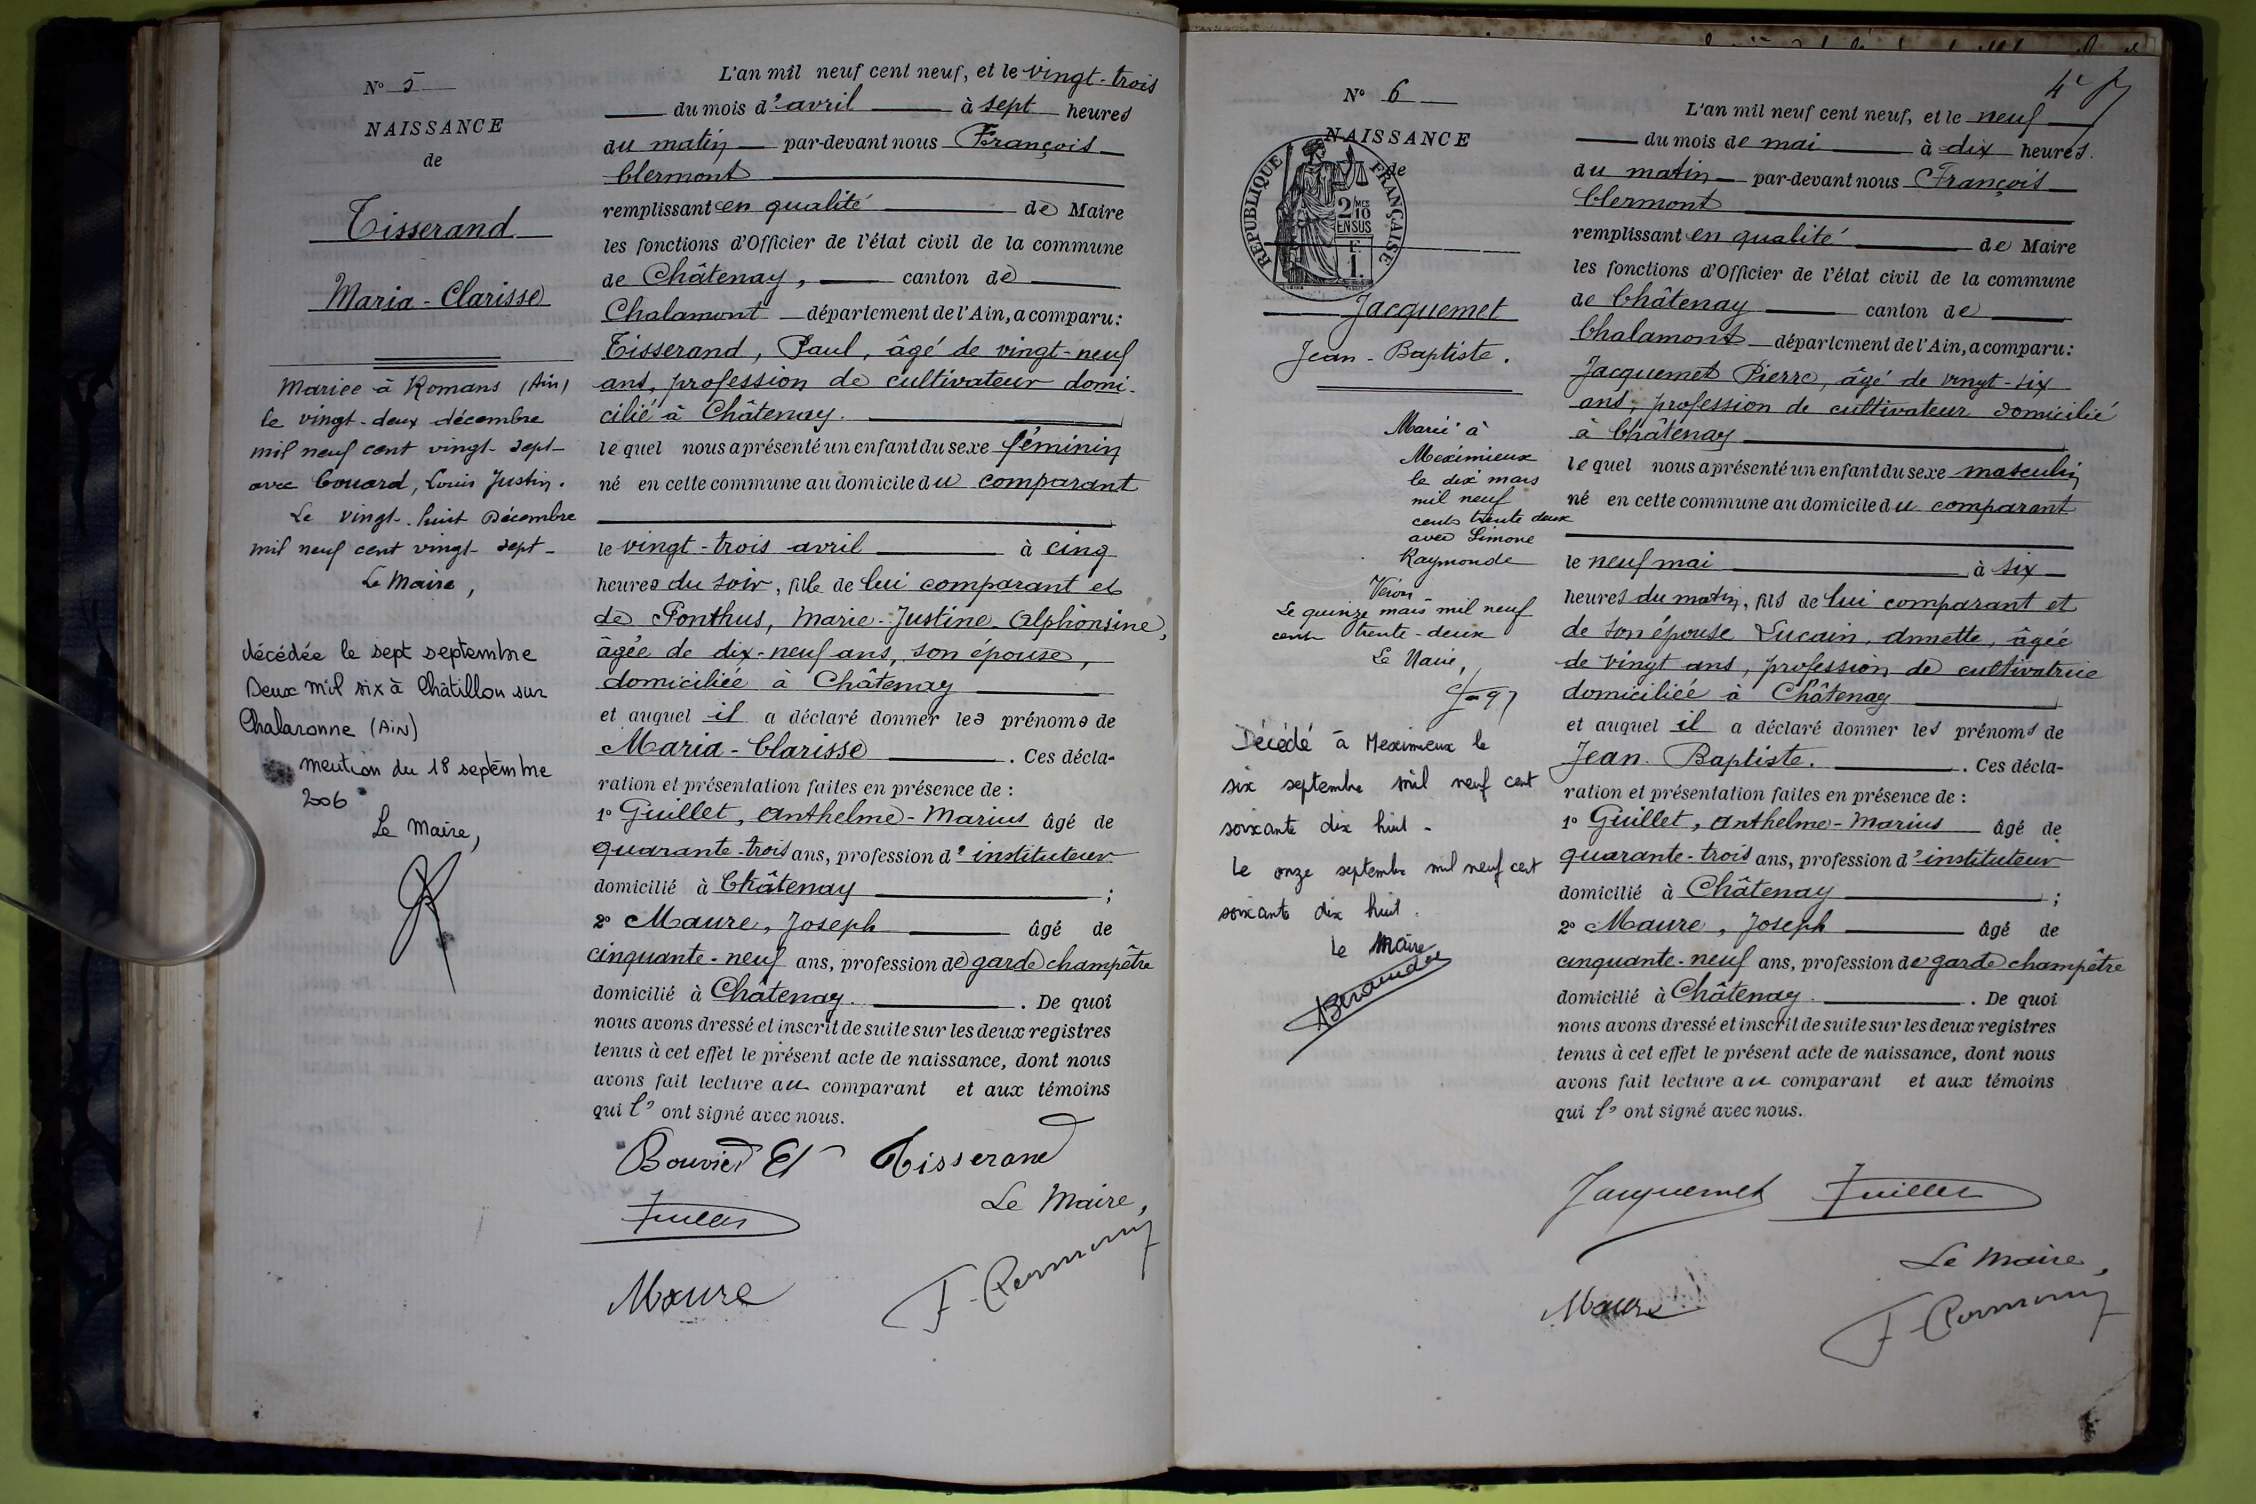 N° 5
NAISSANCE
de
Tisserand
Maria-Clarisse
Mariée à Romans (Ain)
le vingt-deux décembre
mil neuf cent vingt-sept-
avec Couard, Louis Justin.
Le vingt-huit Décembre
mil neuf cent vingt-sept-
Le Maire,
décédée le sept septembre
Deux mil six à Châtillon sur
Chalaronne (Ain)
mention du 18 septembre
2006
Le Maire,
L'an mil neuf cent neuf, et le vingt-trois
du mois d'avril à sept heures
du matin par-devant nous François
Clermont
remplissant en qualité de Maire
les fonctions d'Officier de l'état civil de la commune
de Châtenay, canton de
Chalamont département de l'Ain, a comparu:
Tisserand, Paul, âgé de vingt-neuf
ans, profession de cultivateur domi-
cilié à Châtenay.
lequel nous a présenté un enfant du sexe féminin
né en cette commune au domicile du comparant
le vingt-trois avril à cinq
heures du soir, fille de lui comparant et
de Ponthus, Marie-Justine-Alphonsine,
âgée de dix-neuf ans, son épouse,
domiciliée à Châtenay
et auquel il a déclaré donner les prénoms de
Maria-Clarisse. Ces décla-
ration et présentation faites en présence de:
1° Guillet, Anthelme-Marius âgé de
quarante-trois ans, profession d'instituteur
domicilié à Châtenay;
2° Maure, Joseph âgé de
cinquante-neuf ans, profession de garde champêtre
domicilié à Châtenay. De quoi
nous avons dressé et inscrit de suite sur les deux registres
tenus à cet effet le présent acte de naissance, dont nous
avons fait lecture au comparant et aux témoins
qui l'ont signé avec nous.
Tisserand
Le Maire,
Maure
N° 6
NAISSANCE
de
RÉPUBLIQUE FRANÇAISE
2 MES
10
EN SUS
F.
1.
Jacquemet
Jean-Baptiste.
Marié à
Meximieux
le dix mars
mil neuf
cent trente deux
avec Simone
Raymonde
Le quinze mars mil neuf
cent trente-deux
Le Maire,
Décédé à Meximieux le
six septembre mil neuf cent
soixante dix huit-
Le onze septembre mil neuf cent
soixante dix huit.
Le Maire
L'an mil neuf cent neuf, et le neuf
du mois de mai à dix heures.
du matin par-devant nous François
Clermont
remplissant en qualité de Maire
les fonctions d'Officier de l'état civil de la commune
de Châtenay canton de
Chalamont département de l'Ain, a comparu:
Jacquemet Pierre, âgé de vingt-six
ans, profession de cultivateur domicilié
à Châtenay
lequel nous a présenté un enfant du sexe masculin
né en cette commune au domicile du comparant
le neuf mai à six
heures du matin, fils de lui comparant et
de son épouse Lucain, Annette, âgée
de vingt ans, profession de cultivatrice
domiciliée à Châtenay
et auquel il a déclaré donner les prénoms de
Jean-Baptiste. Ces décla-
ration et présentation faites en présence de:
1° Guillet, Anthelme-Marius âgé de
quarante-trois ans, profession d'instituteur
domicilié à Châtenay;
2° Maure, Joseph âgé de
cinquante-neuf ans, profession de garde champêtre
domicilié à Châtenay. De quoi
nous avons dressé et inscrit de suite sur les deux registres
tenus à cet effet le présent acte de naissance, dont nous
avons fait lecture au comparant et aux témoins
qui l'ont signé avec nous.
Jacquemet Guillet
Le Maire,
Maure